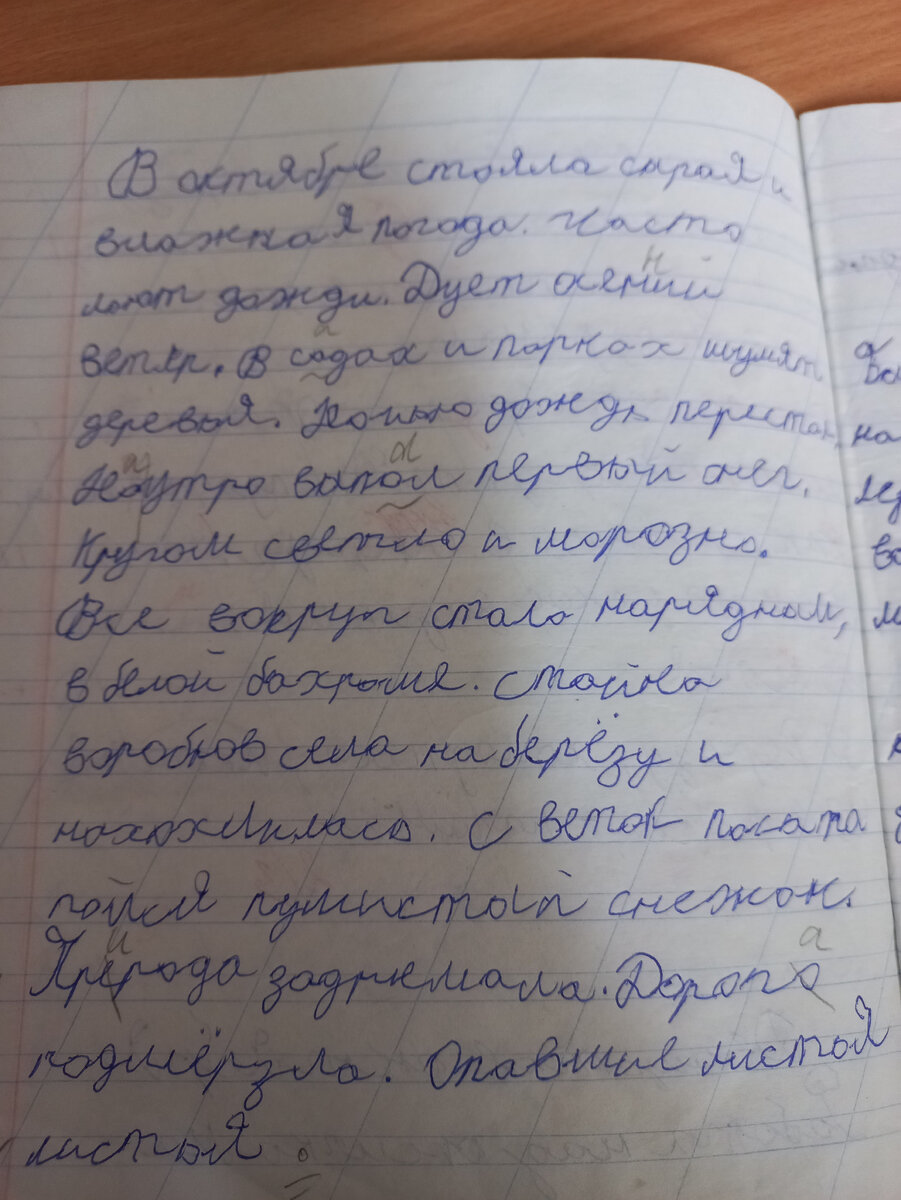 В октябре стояла сырая и
влажная погода. Часто
льют дожди. Дует осений
ветер. В содах и парках шумят
деревья. Ночью дождь перестал.
Наутро выпол первый снег.
Кругом светло и морозно.
Все вокруг стало нарядным,
в белой бахроме. Стайка
воробьов села на берёзу и
нохохлилась. С веток посапа
пойся пушистый снежок.
Прерода задремала. Дорого
подмёрзла. Опавшие листья
листья.